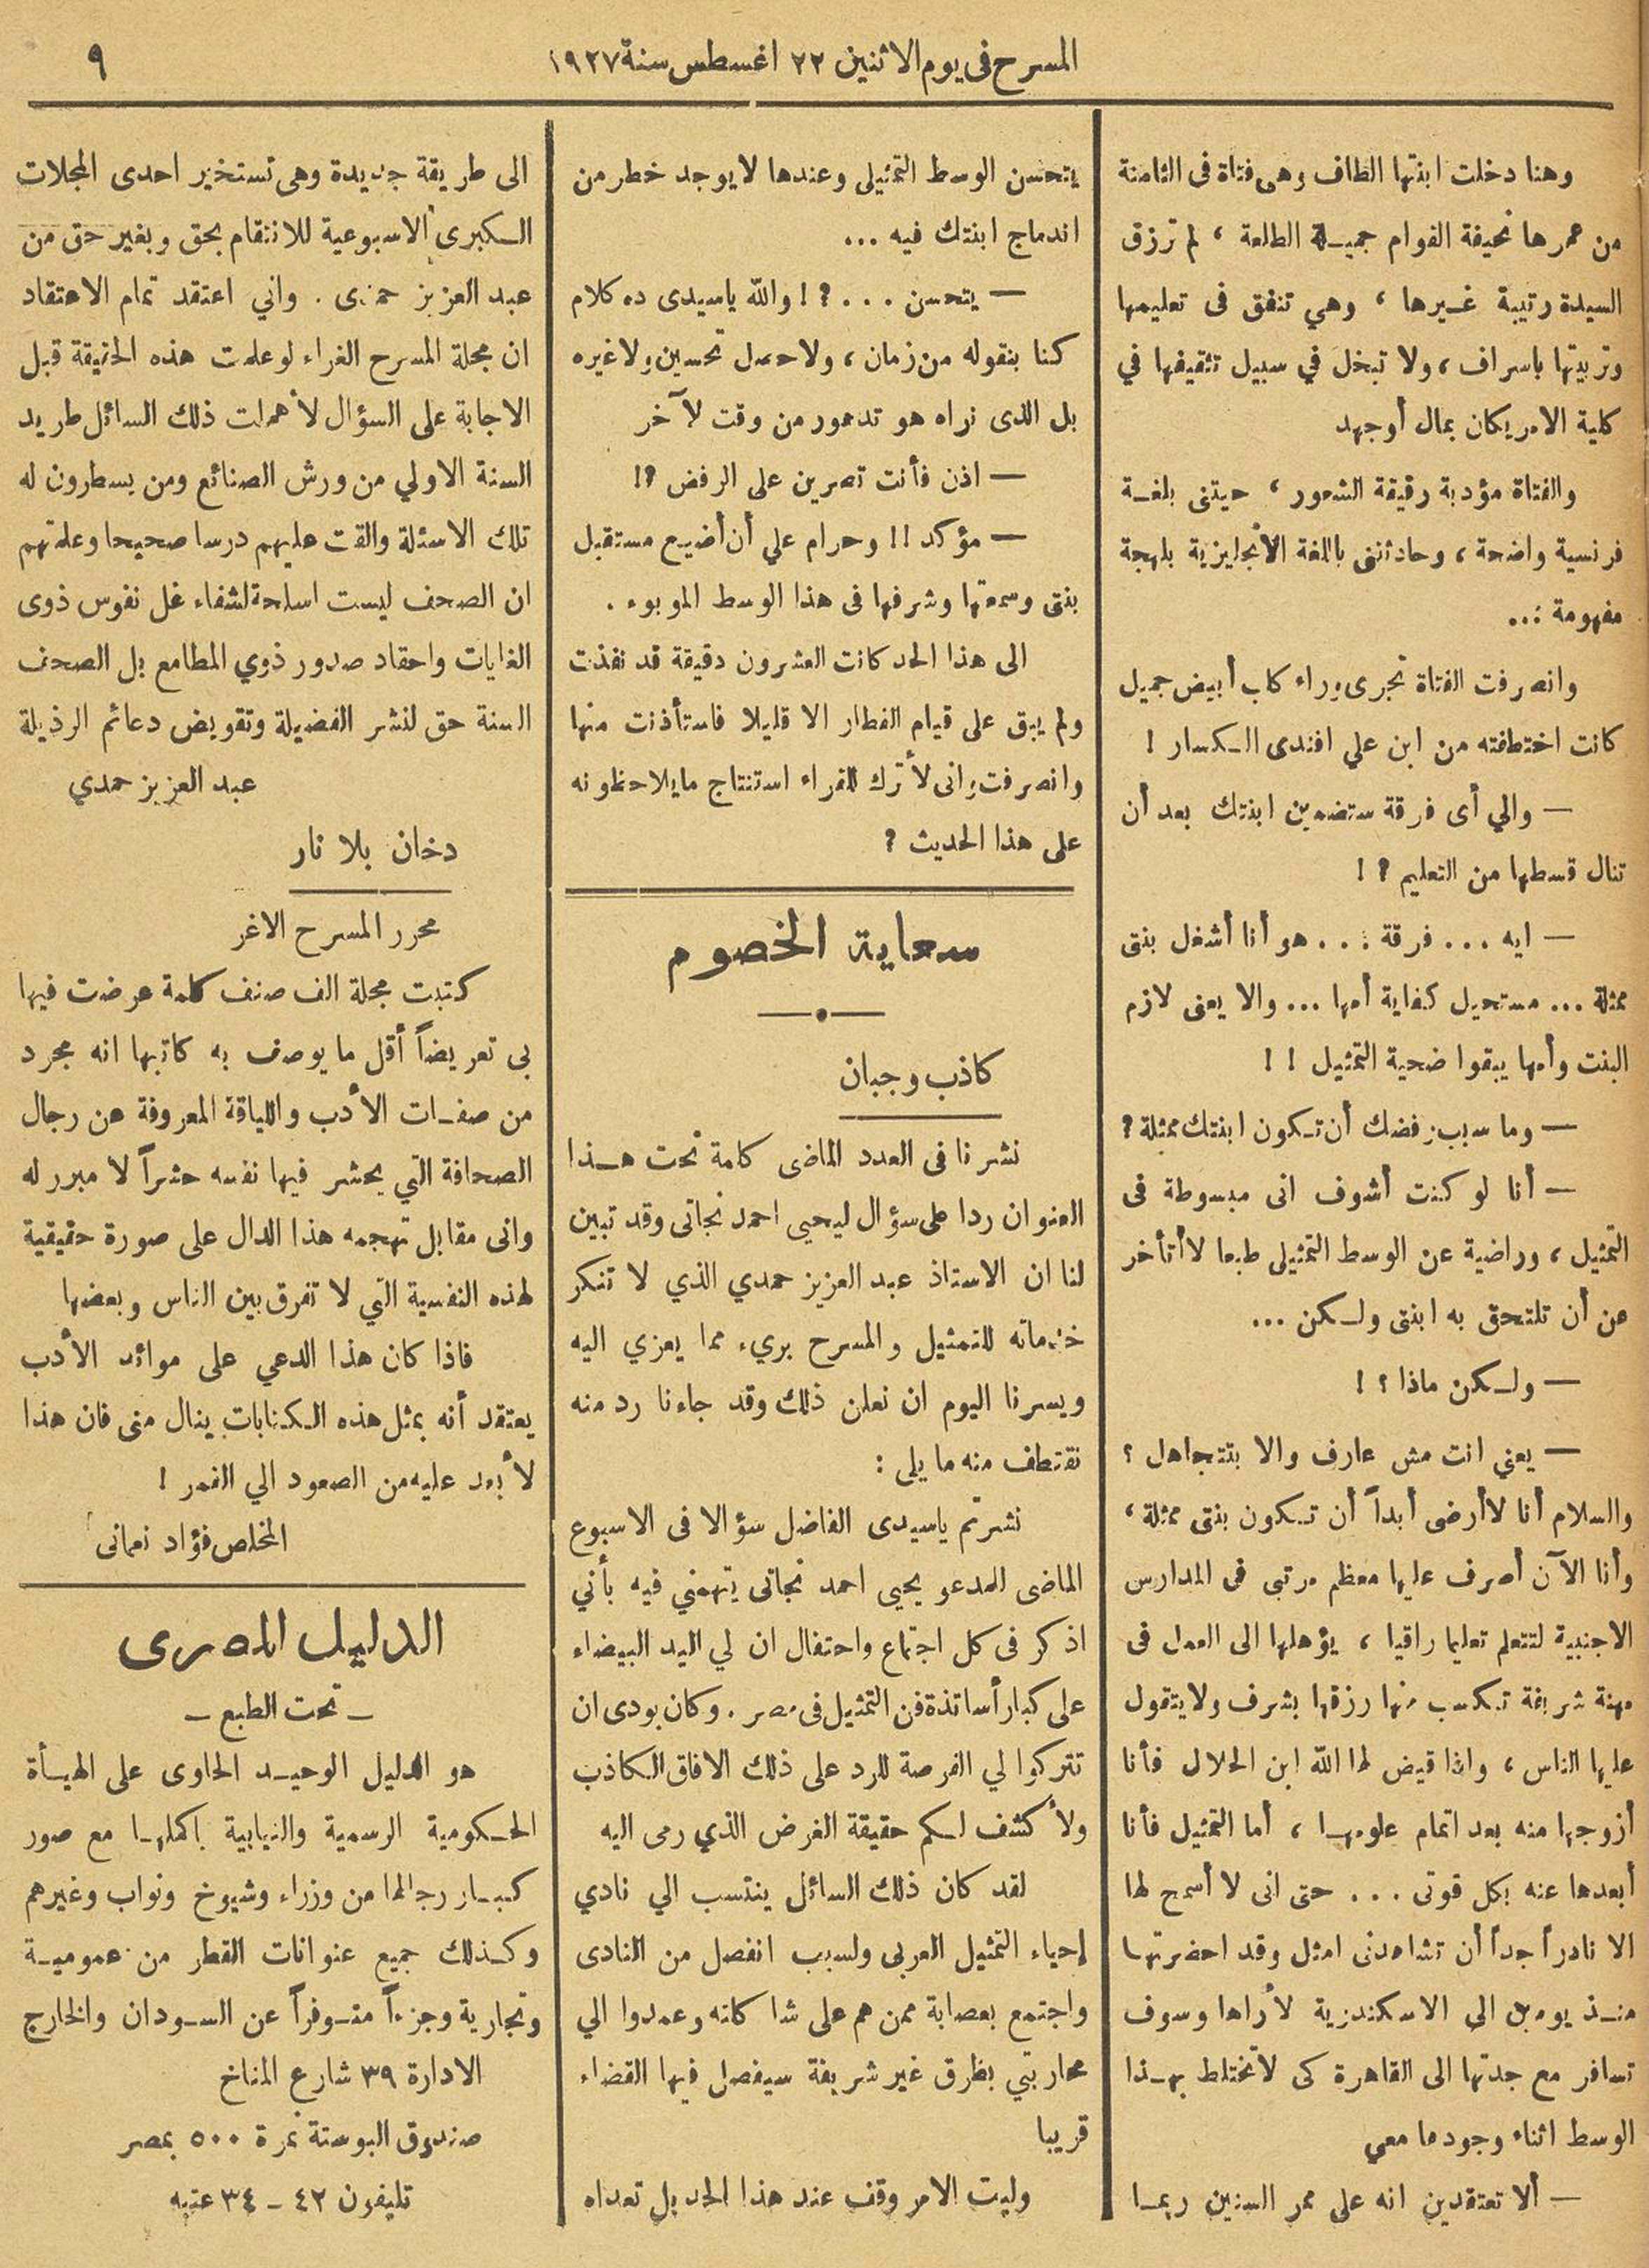 المسرح فى يوم الاثنين ٢٢ اغسطس سنة ١٩٢٧
٩
وهنا دخلت ابنتها الطاف وهى فتاة فى الثامنة
من عمرها نحيفة القوام جميلة الطلعة ، لم ترزق
السيدة رتيبة غيرها ، وهي تنفق فى تعليمها
وتربيتها باسراف ، ولا تبخل في سبيل تثقيفها في
كلية الامريكان بمال أوجهد
والفتاة مؤدبة رقيقة الشعور ، حيتنى بلغة
فرنسية واضحة ، وحادثتنى باللغة الأنجليزية بلهجة
مفهومة ...
وانصرفت الفتاة تجرى وراء كلب أبيض جميل
كانت اختطفته من ابن علي افندى الكسار !
— والي أى فرقة ستضمين ابنتك بعد أن
تنال قسطها من التعليم ؟ !
— ايه ... فرقة ... هو أنا أشغل بنتى
ممثلة ... مستحيل كفاية أمها ... والا يعنى لازم
البنت وأمها يبقوا ضحية التمثيل ! !
— وما سبب رفضك أن تكون ابنتك ممثلة ؟
— أنا لو كنت أشوف انى مبسوطة فى
التمثيل ، وراضية عن الوسط التمثيلى طبعا لا أتأخر
عن أن تلتحق به ابنتى ولكن ...
— ولكن ماذا ؟ !
— يعني انت مش عارف والا بتتجاهل ؟
والسلام أنا لا أرضى أبداً أن تكون بنتى ممثلة ،
وأنا الآن أصرف عليها معظم مرتبى فى المدارس
الاجنبية لتتعلم تعليما راقيا ، يؤهلها الى العمل فى
مهنة شريفة تكسب منها رزقها بشرف ولا يتقول
عليها الناس ، واذا قيض لها الله ابن الحلال فأنا
أزوجها منه بعد اتمام علومها ، أما التمثيل فأنا
أبعدها عنه بكل قوتى ... حتى انى لا أسمح لها
الا نادراً جداً أن تشاهدنى امثل وقد احضرتها
منذ يومين الى الاسكندرية لأراها وسوف
تسافر مع جدتها الى القاهرة كى لا تختلط بهذا
الوسط اثناء وجودها معي
— ألا تعتقدين انه على ممر السنين ربما
يتحسن الوسط التمثيلى وعندها لا يوجد خطر من
اندماج ابنتك فيه ...
— يتحسن ... ؟ ! والله ياسيدى ده كلام
كنا بنقوله من زمان ، ولا حصل تحسين ولا غيره
بل الذى نراه هو تدهور من وقت لآخر
— اذن فأنت تصرين على الرفض ؟!
— مؤكد !! وحرام علي أن أضيع مستقبل
بنتى وسمعتها وشرفها فى هذا الوسط الموبوء .
الى هذا الحد كانت العشرون دقيقة قد نفذت
ولم يبق على قيام القطار الا قليلا فاستأذنت منها
وانصرفت وانى لأترك للقراء استنتاج مايلاحظونه
على هذا الحديث ؟
سعاية الخصوم
كاذب وجبان
نشرنا فى العدد الماضى كلمة تحت هذا
العنوان ردا على سؤال ليحيى احمد نجاتى وقد تبين
لنا ان الاستاذ عبد العزيز حمدي الذي لا تنكر
خدماته للتمثيل والمسرح بريء مما يعزي اليه
ويسرنا اليوم ان نعلن ذلك وقد جاءنا رد منه
نقتطف منه ما يلى :
نشرتم ياسيدى الفاضل سؤالا فى الاسبوع
الماضى للمدعو يحيى احمد نجاتى يتهمني فيه بأني
اذكر فى كل اجتماع واحتفال ان لي اليد البيضاء
على كبار أساتذة فن التمثيل فى مصر . وكان بودى ان
تتركوا لي الفرصة للرد على ذلك الافاق الكاذب
ولأكشف لكم حقيقة الغرض الذي رمى اليه
لقد كان ذلك السائل ينتسب الي نادي
إحياء التمثيل العربى ولسبب انفصل من النادى
واجتمع بعصابة ممن هم على شاكلته وعمدوا الي
محاربتي بطرق غير شريفة سيفصل فيها القضاء
قريبا
وليت الامر وقف عند هذا الحد بل تعداه
الى طريقة جديدة وهى تستخير احدى المجلات
الكبرى الاسبوعية للانتقام بحق وبغير حق من
عبد العزيز حمدى . واني اعتقد تمام الاعتقاد
ان مجلة المسرح الغراء لو علمت هذه الحقيقة قبل
الاجابة على السؤال لأهملت ذلك السائل طريد
السنة الاولي من ورش الصنائع ومن يسطرون له
تلك الاسئلة والقت عليهم درسا صحيحا وعلمتهم
ان الصحف ليست اسلحة لشفاء غل نفوس ذوى
الغايات واحقاد صدور ذوي المطامع بل الصحف
السنة حق لنشر الفضيلة وتقويض دعائم الرذيلة
عبد العزيز حمدي
دخان بلا نار
محرر المسرح الاغر
كتبت مجلة الف صنف كلمة عرضت فيها
بى تعريضاً أقل ما يوصف به كاتبها انه مجرد
من صفات الأدب واللياقة المعروفة عن رجال
الصحافة التي يحشر فيها نفسه حشراً لا مبرر له
وانى مقابل تهجمه هذا الدال على صورة حقيقية
لهذه النفسية التي لا تفرق بين الناس وبعضها
فاذا كان هذا الدعي على موائد الأدب
يعتقد أنه بمثل هذه الكتابات ينال منى فان هذا
لأبعد عليه من الصعود الي القمر !
المخلص فؤاد نعمانى
الدليل المصرى
— تحت الطبع —
هو الدليل الوحيد الحاوى على الهيأة
الحكومية الرسمية والنيابية باكملها مع صور
كبار رجالها من وزراء وشيوخ ونواب وغيرهم
وكذلك جميع عنوانات القطر من عمومية
وتجارية وجزءاً متوفراً عن السودان والخارج
الادارة ٣٩ شارع المناخ
صندوق البوستة نمرة ٥٠٠ بمصر
تليفون ٤٢ – ٣٤ عتبه